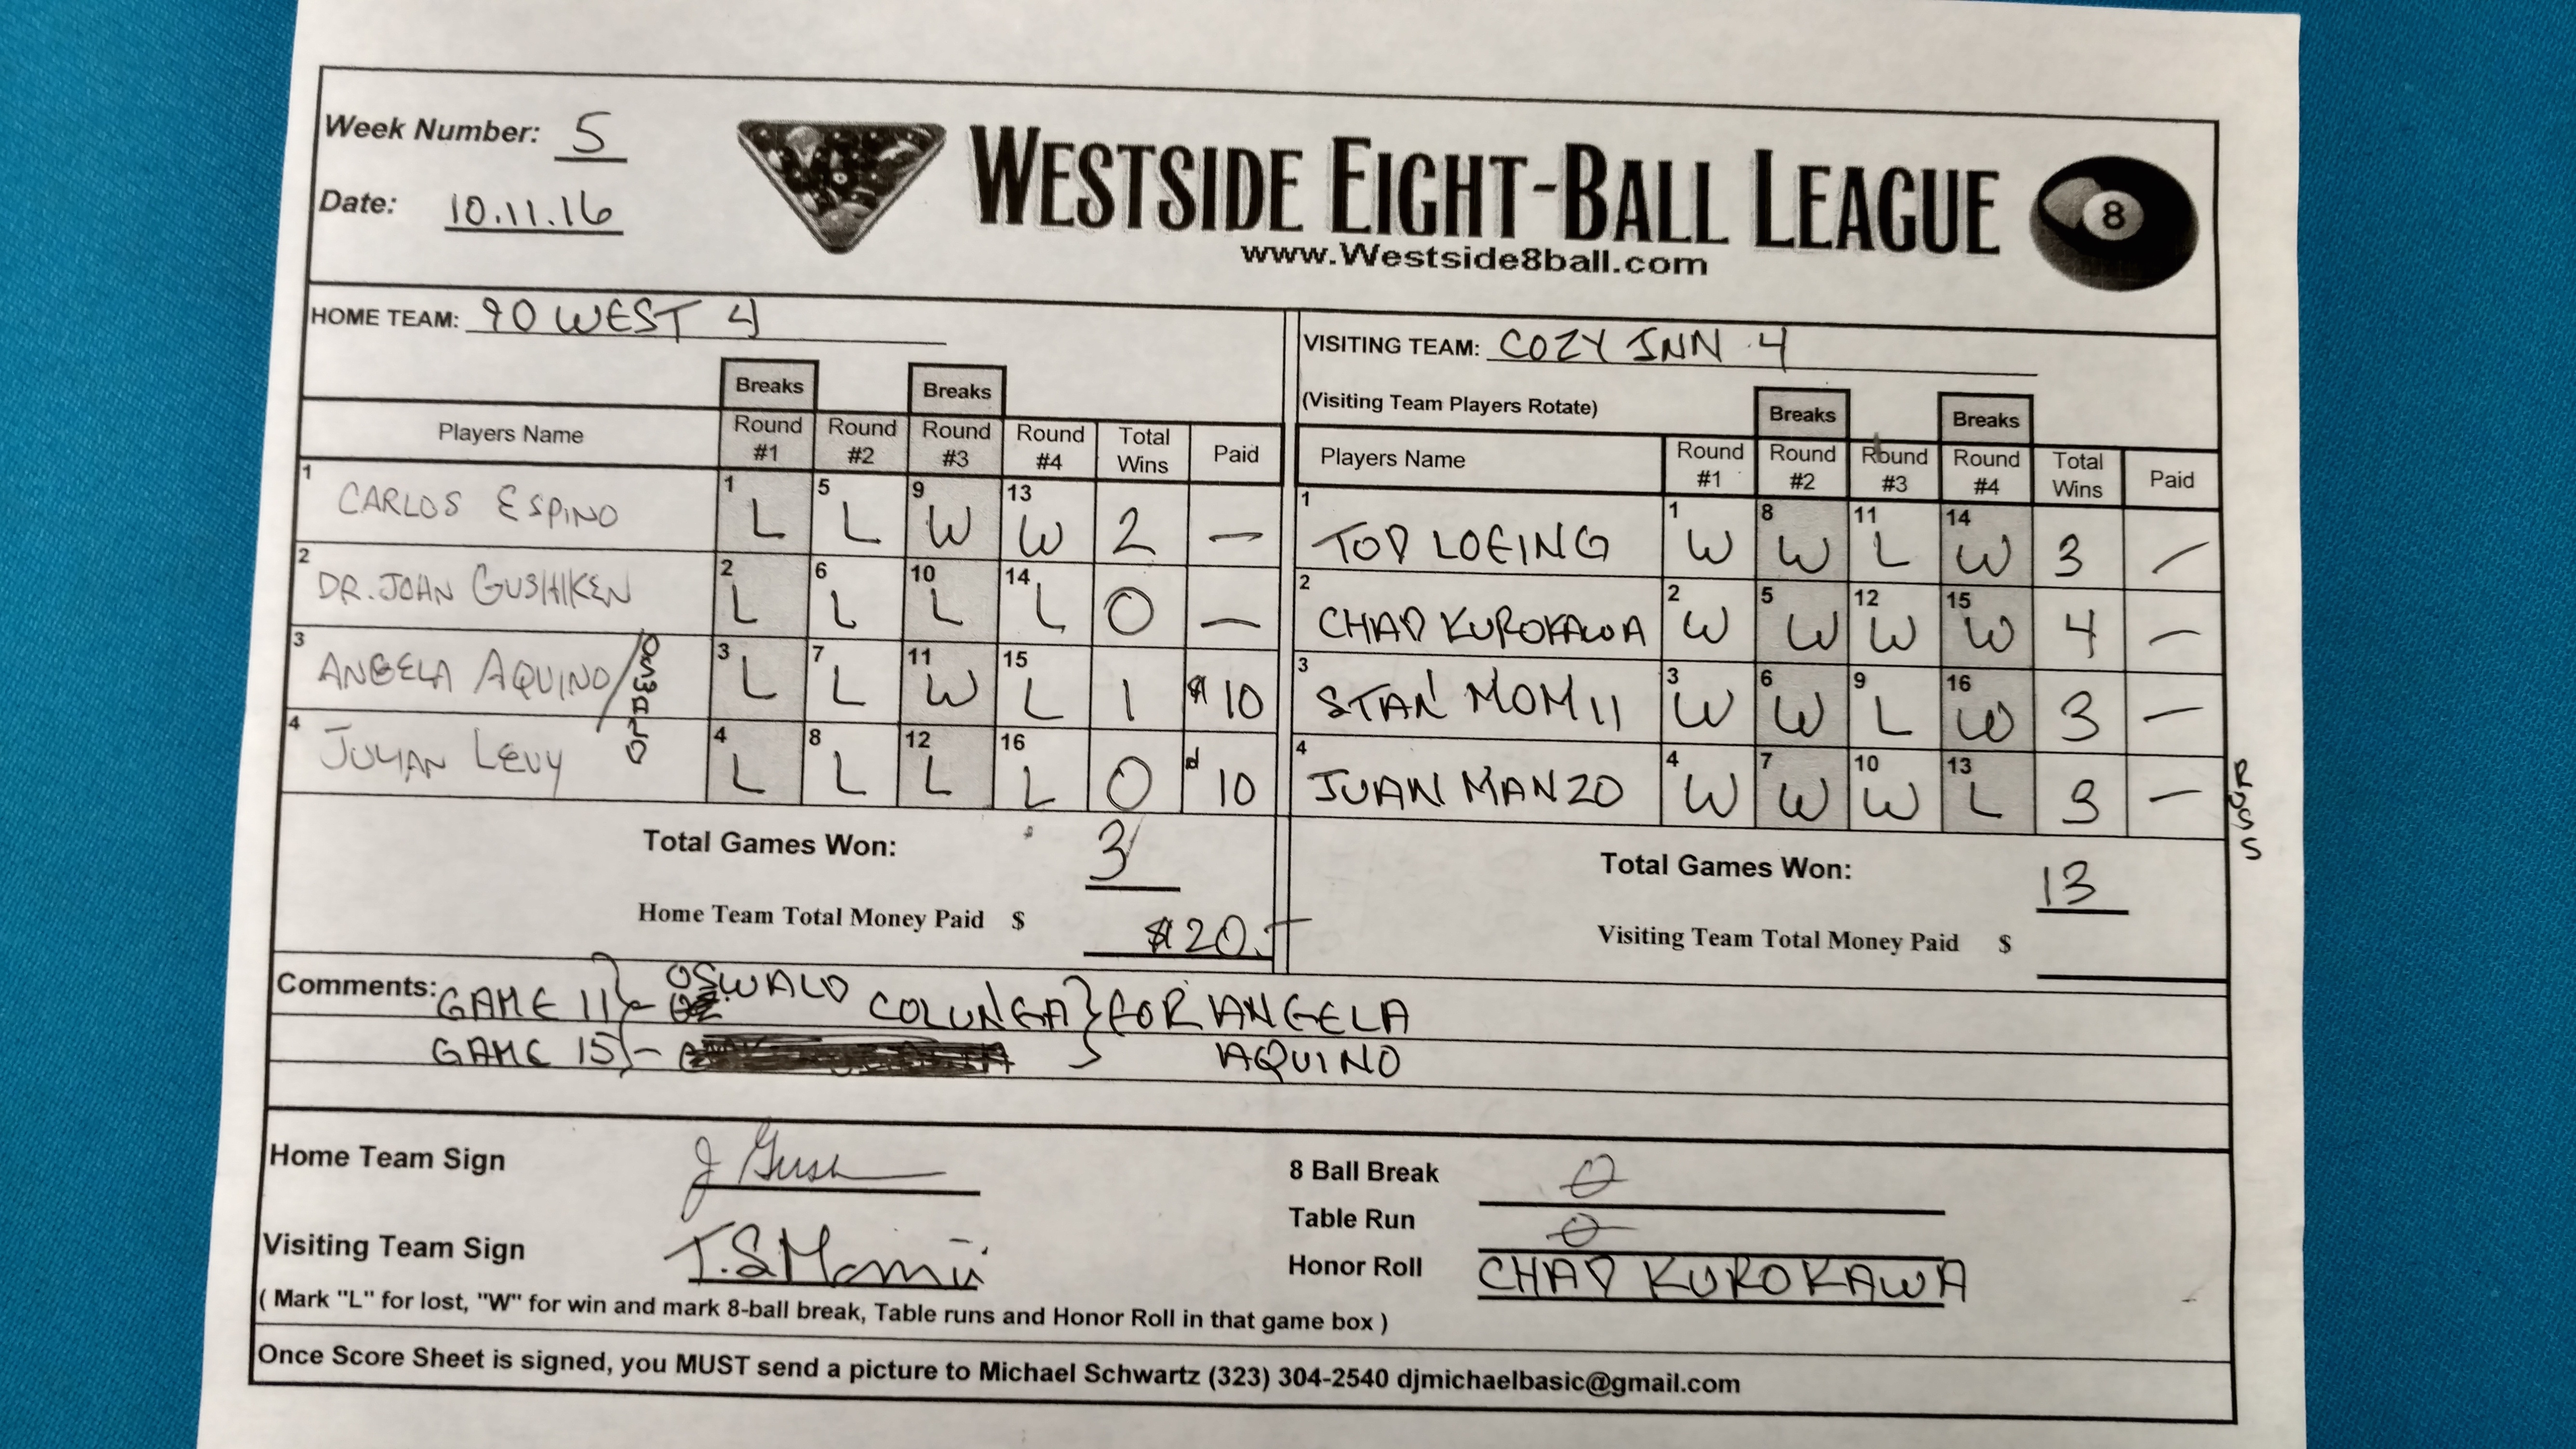 Week Number: 5
Date: 10.11.16
WESTSIDE EIGHT-BALL LEAGUE
8
www.Westside8ball.com
HOME TEAM: 90 WEST 4
VISITING TEAM: COZY INN 4
(Visiting Team Players Rotate)
Breaks Breaks
Players Name Round #1 Round #2 Round #3 Round #4 Total Wins Paid
1 CARLOS ESPINO 1 L 5 L 9 W 13 W 2 —
2 DR. JOHN GUSHIKEN 2 L 6 L 10 L 14 L 0 —
3 ANGELA AQUINO/ 3 L 7 L 11 W 15 L 1 $10
4 JULIAN LEVY 4 L 8 L 12 L 16 L 0 10
Total Games Won: 3
Home Team Total Money Paid $ $20.
Breaks Breaks
Players Name Round #1 Round #2 Round #3 Round #4 Total Wins Paid
1 TOD LOEING 1 W 8 W 11 L 14 W 3 —
2 CHAD KUROKAWA 2 W 5 W 12 W 15 W 4 —
3 STAN MOMII 3 W 6 W 9 L 16 W 3 —
4 JUAN MANZO 4 W 7 W 10 W 13 L 3 —
ROSS
Total Games Won: 13
Visiting Team Total Money Paid $
Comments: GAME 11 - OSWALD COLUNGA } FOR ANGELA
GAME 15 - AQUINO
Home Team Sign J Gush
Visiting Team Sign T.S Momii
8 Ball Break 0
Table Run 0
Honor Roll CHAD KUROKAWA
( Mark "L" for lost, "W" for win and mark 8-ball break, Table runs and Honor Roll in that game box )
Once Score Sheet is signed, you MUST send a picture to Michael Schwartz (323) 304-2540 djmichaelbasic@gmail.com